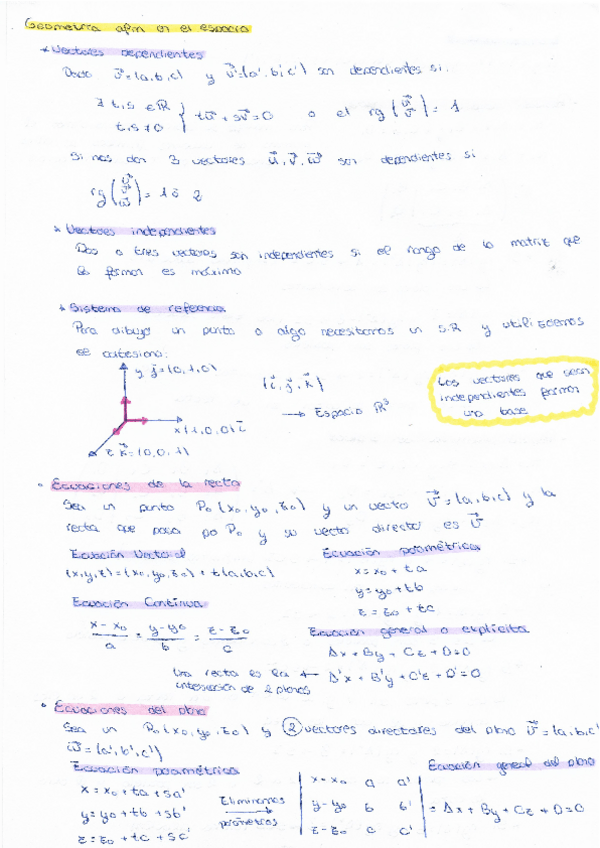 Geometría afín en el espacio
* Vectores dependientes
Dado u⃗=(a,b,c) y v⃗=(a',b',c') son dependientes si:
∃ t,s ∈ ℝ
t,s ≠ 0 } tu⃗ + sv⃗ = 0 o el rg(u⃗ v⃗) = 1
Si nos dan 3 vectores u⃗, v⃗, w⃗ son dependientes si
rg(u⃗ v⃗ w⃗) = 1 ó 2
* Vectores independientes
Dos o tres vectores son independientes si el rango de la matriz que
la forman es máximo
* Sistema de referencia
Para dibujar un punto o algo necesitamos un S.R y utilizaremos
el cartesiano:
y j⃗=(0,1,0)
{i⃗, j⃗, k⃗}
→ Espacio ℝ³
x(1,0,0) i⃗
z k⃗=(0,0,1)
Los vectores que sean
independientes forman
una base
• Ecuaciones de la recta
Sea un punto P₀(x₀,y₀,z₀) y un vector v⃗=(a,b,c) y la
recta que pasa por P₀ y su vector director es v⃗
Ecuación Vectorial
(x,y,z)=(x₀,y₀,z₀)+t(a,b,c)
Ecuación paramétrica
x=x₀+ta
y=y₀+tb
z=z₀+tc
Ecuación Continua
x-x₀/a = y-y₀/b = z-z₀/c
Ecuación general o explícita
Ax+By+Cz+D=0
A'x+B'y+C'z+D'=0
Una recta es la ←
intersección de 2 planos
• Ecuaciones del plano
Sea un P₀(x₀,y₀,z₀) y 2 vectores directores del plano v⃗=(a,b,c)
w⃗=(a',b',c')
Ecuación paramétrica
x=x₀+ta+sa'
y=y₀+tb+sb'
z=z₀+tc+sc'
Eliminamos
→
parámetros
| x-x₀ a a' |
| y-y₀ b b' |
| z-z₀ c c' |
Ecuación general del plano
= Ax+By+Cz+D=0